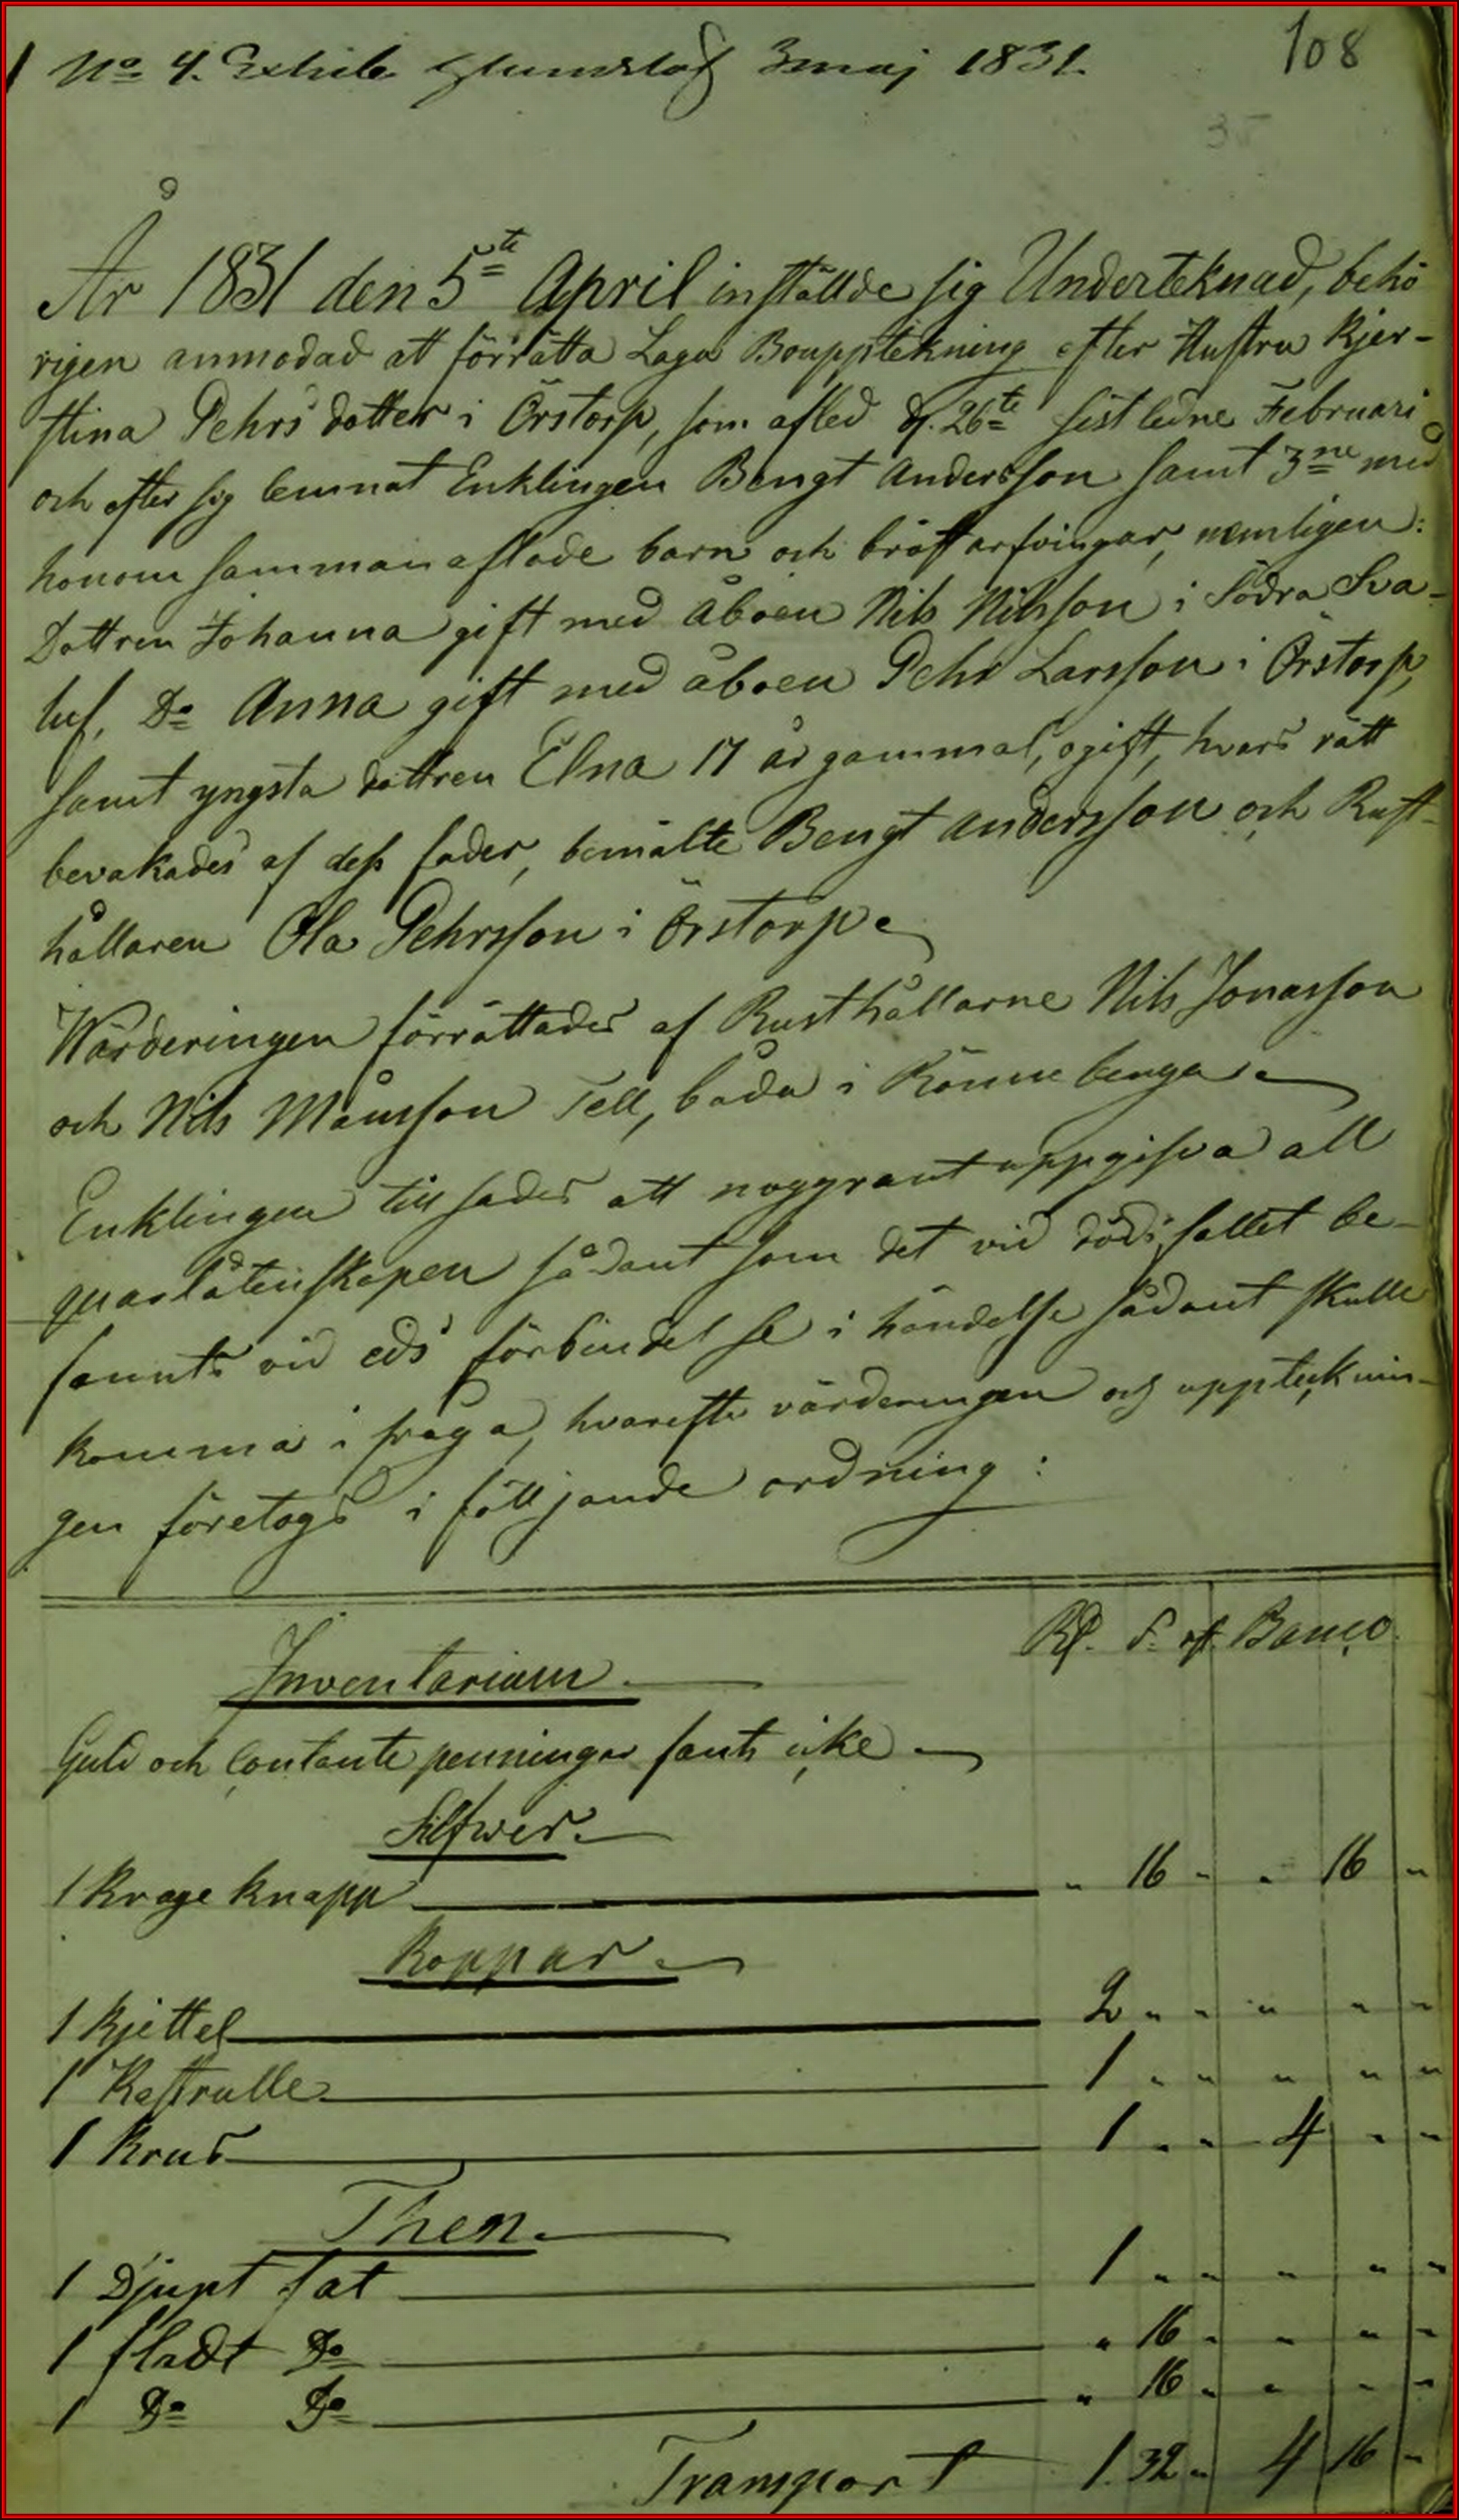 No 4. Exhib. Glumslöf 3 maj 1831.
108
35
År 1831 den 5te April inställde sig Underteknad, behö
rigen anmodad att förrätta Laga Bouppteknıng efter Hustru Kjer-
stina Pehrs dotter i Örstorp, som afled d. 26te sistledne Februari
och efter sig lemnat Enklingen Bengt Andersson samt 3ne med
honom sammanaflade barn och bröstarfvingar, nemligen:
Dottren Johanna gift med åboen Nils Nilsson i Södra Sva-
luf, Do Anna gift med åboen Pehr Larsson i Örstorp,
samt yngsta dottren Elna 17 år gammal, ogift, hvars rätt
bevakades af dess fader, bemälte Bengt Andersson och Rust-
hållaren Ola Pehrsson i Örstorp.
Wärderingen förrättades af Rusthållarne Nils Jonasson
och Nils Månsson Tell, båda i Rönneberga.
Enklingen tillsades att noggrant uppgifva all
quarlåtenskapen sådant som det vid dödsfallet be-
fannts vid eds förbindelse i händelse sådant skulle
komma i fråga, hvarefter värderingen och upptecknin-
gen företogs i följande ordning:
Rd. S. rst. Banco.
Inventarium.
Guld och Contante penningar fants icke
Silfwer.
1 Krage knapp " 16 - " 16 "
Koppar.
1 Kjettel 2 " " " " "
1 Kastrulle 1 " " " " "
1 Krus 1 " " 4 " "
Then.
1 Djupt fat 1 " " " " "
1 fladt Do " 16 " " " "
1 Do Do " 16 " " " "
Transport 1. 32 " 4 16 "